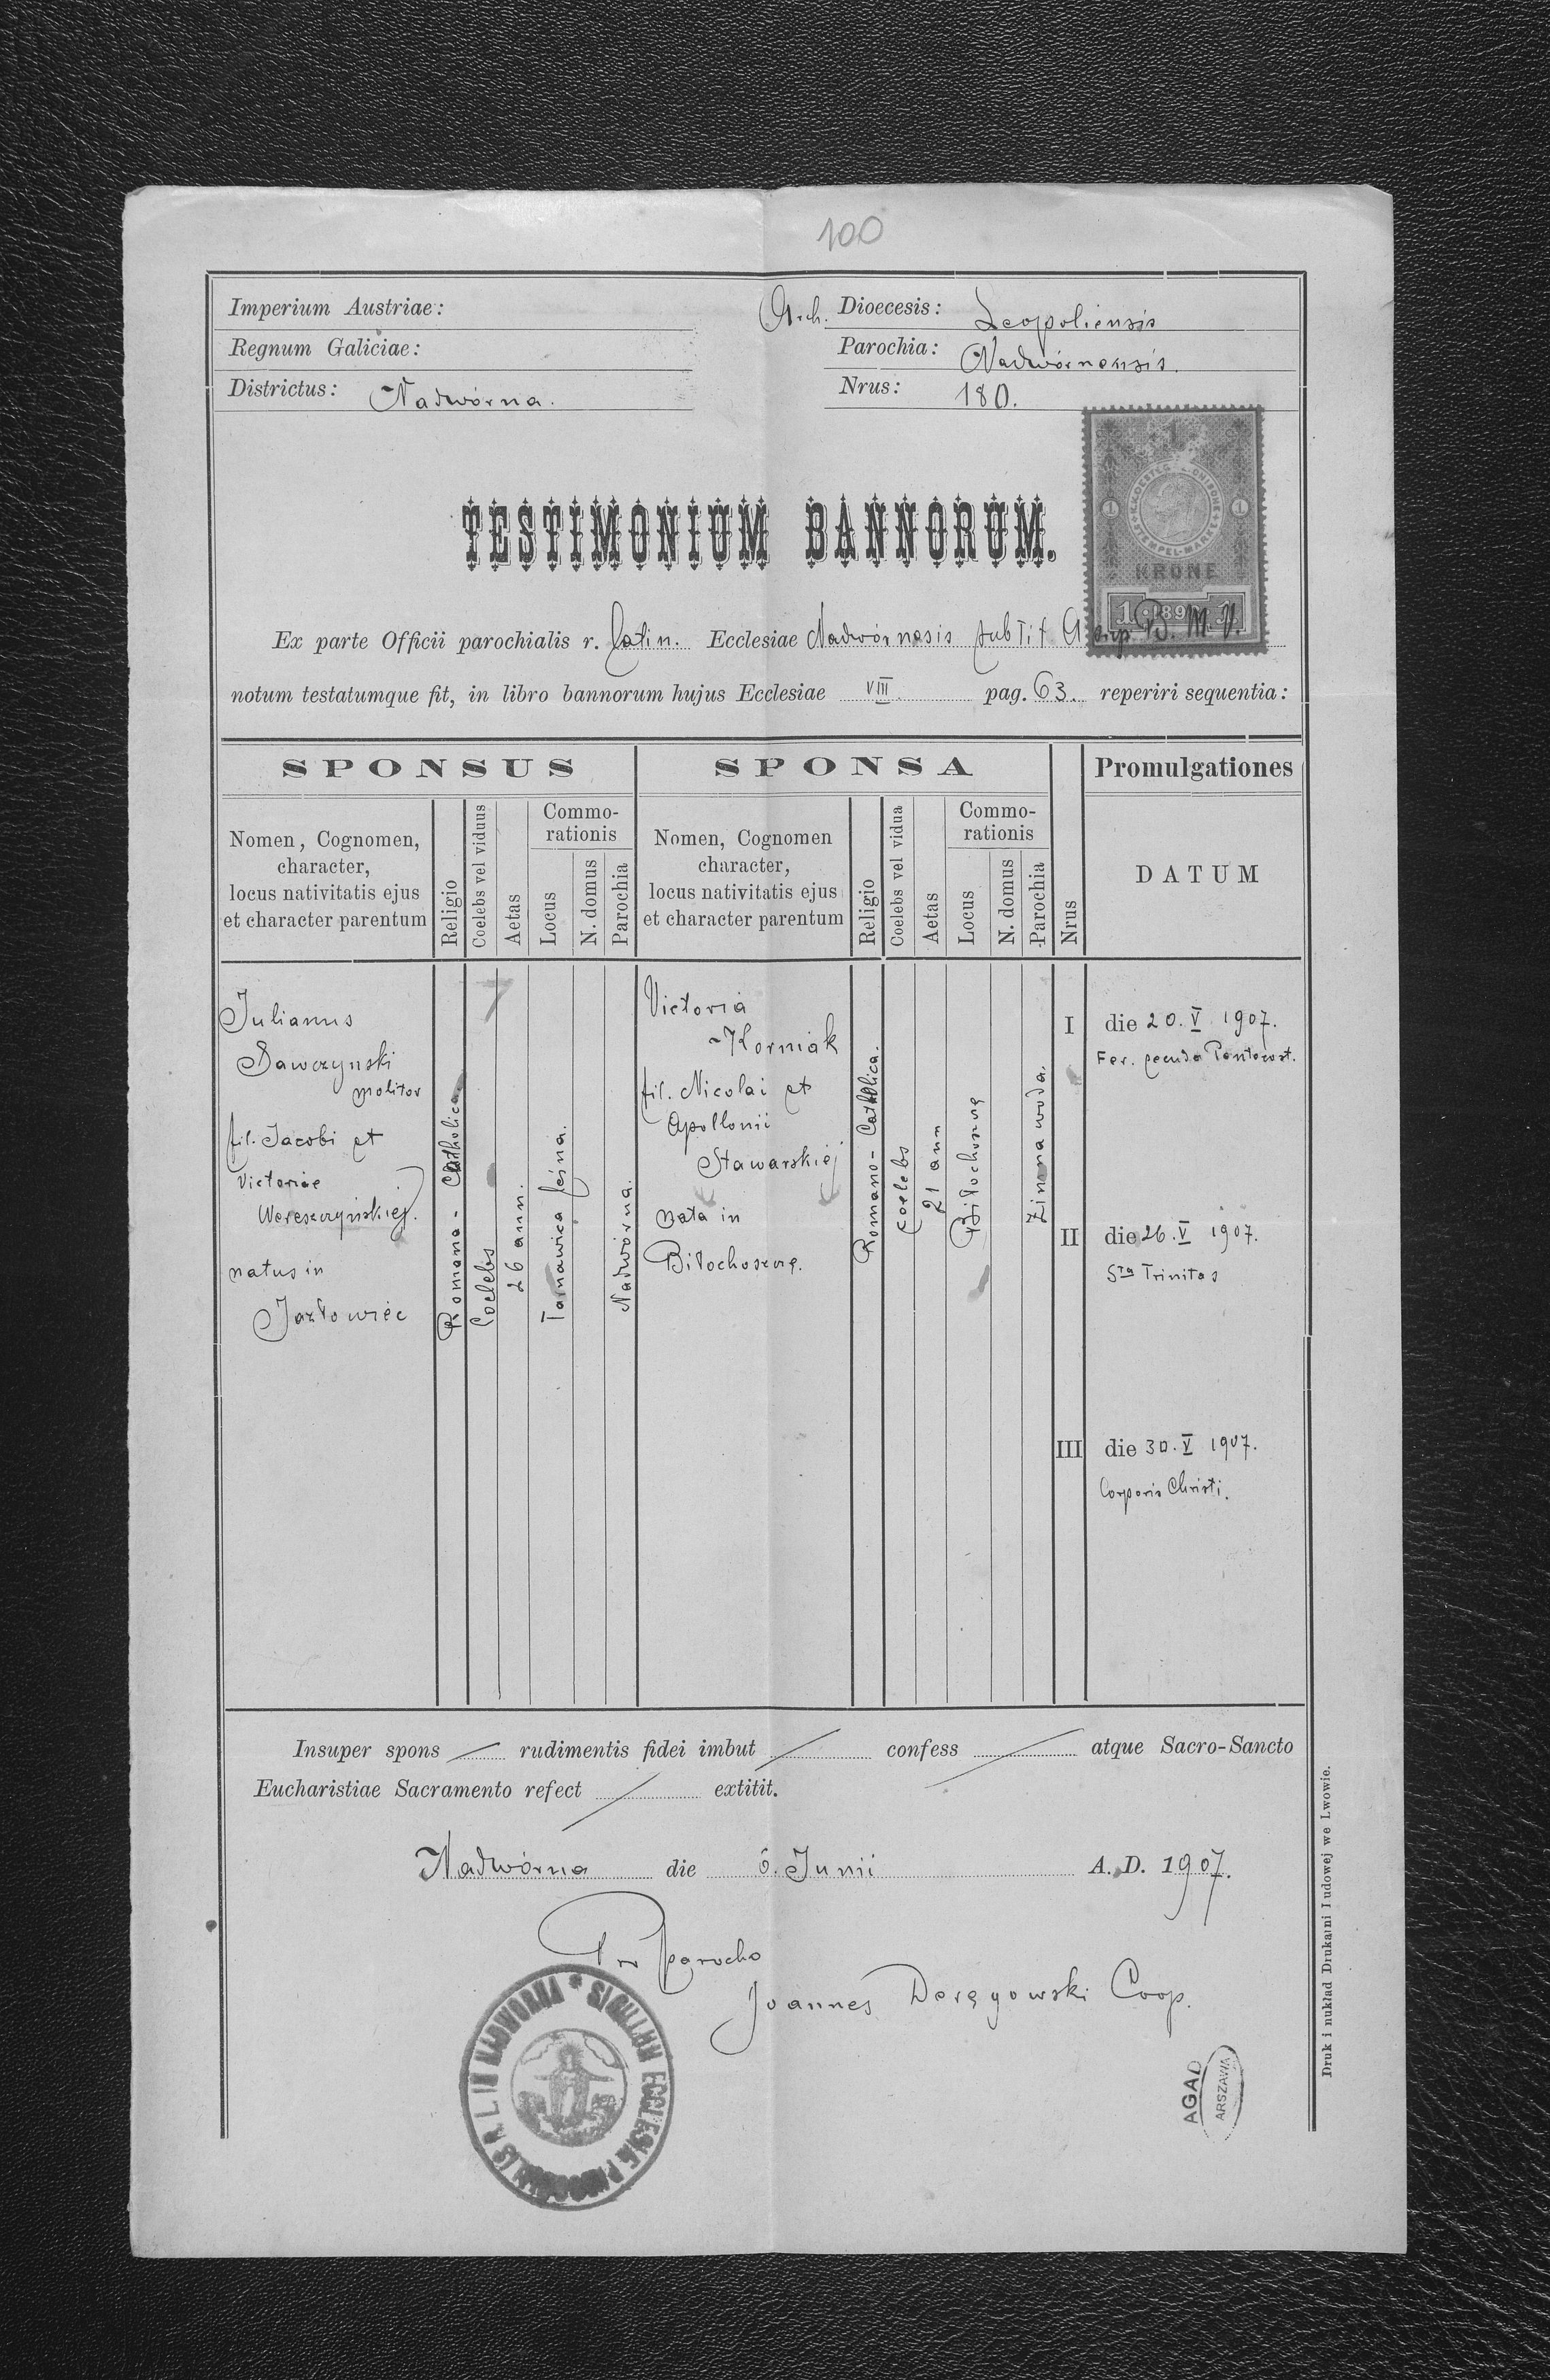 100
Imperium Austriae:
Regnum Galiciae:
Districtus: Nadwórna.
Arch. Dioecesis: Leopoliensis
Parochia: Nadwórnensis.
Nrus: 180.
1
K.K. OESTERR. UNG. STEMPEL-MARKE
1 1
KRONE
1 189 1
TESTIMONIUM BANNORUM.
Ex parte Officii parochialis r. latin. Ecclesiae Nadwórnesis sub Tit Assup B. M. V.
notum testatumque fit, in libro bannorum hujus Ecclesiae VIII. pag. 63. reperiri sequentia:
SPONSUS
Nomen, Cognomen,
character,
locus nativitatis ejus
et character parentum
Religio
Coelebs vel viduus
Aetas
Commo-
rationis
Locus
N. domus
Parochia
SPONSA
Nomen, Cognomen
character,
locus nativitatis ejus
et character parentum
Religio
Coelebs vel vidua
Aetas
Commo-
rationis
Locus
N. domus
Parochia
Nrus
Promulgationes
DATUM
Julianus
Sawczynski
molitor
fil. Jacobi et
Victoriae
Wereszczyńskiej.
natus in
Jazłowiec
Romana - Catholica.
Coelebs
26 ann.
Tarnawica leśna.
Nadwórna.
Victoria
Korniak
fil. Nicolai et
Apollonii
Stawarskiej
nata in
Biłochoszczę.
Romano - Catholica.
Coelebs
21 ann
Biłochoszczę
Zimna woda.
I die 20. V 1907.
Fer. secunda Pentecost.
II die 26. V 1907.
Sta Trinitas
III die 30. V 1907.
Corporis Christi.
Insuper spons rudimentis fidei imbut confess atque Sacro-Sancto
Eucharistiae Sacramento refect extitit.
Nadwórna die 6. Junii A. D. 1907.
Pro parocho
Joannes Deręgowski Coop.
SIGILLUM ECCLESIÆ PAROCHIALIS R. L. IN NADWORNA *
AGAD
ARSZAWA
Druk i nakład Drukarni Ludowej we Lwowie.